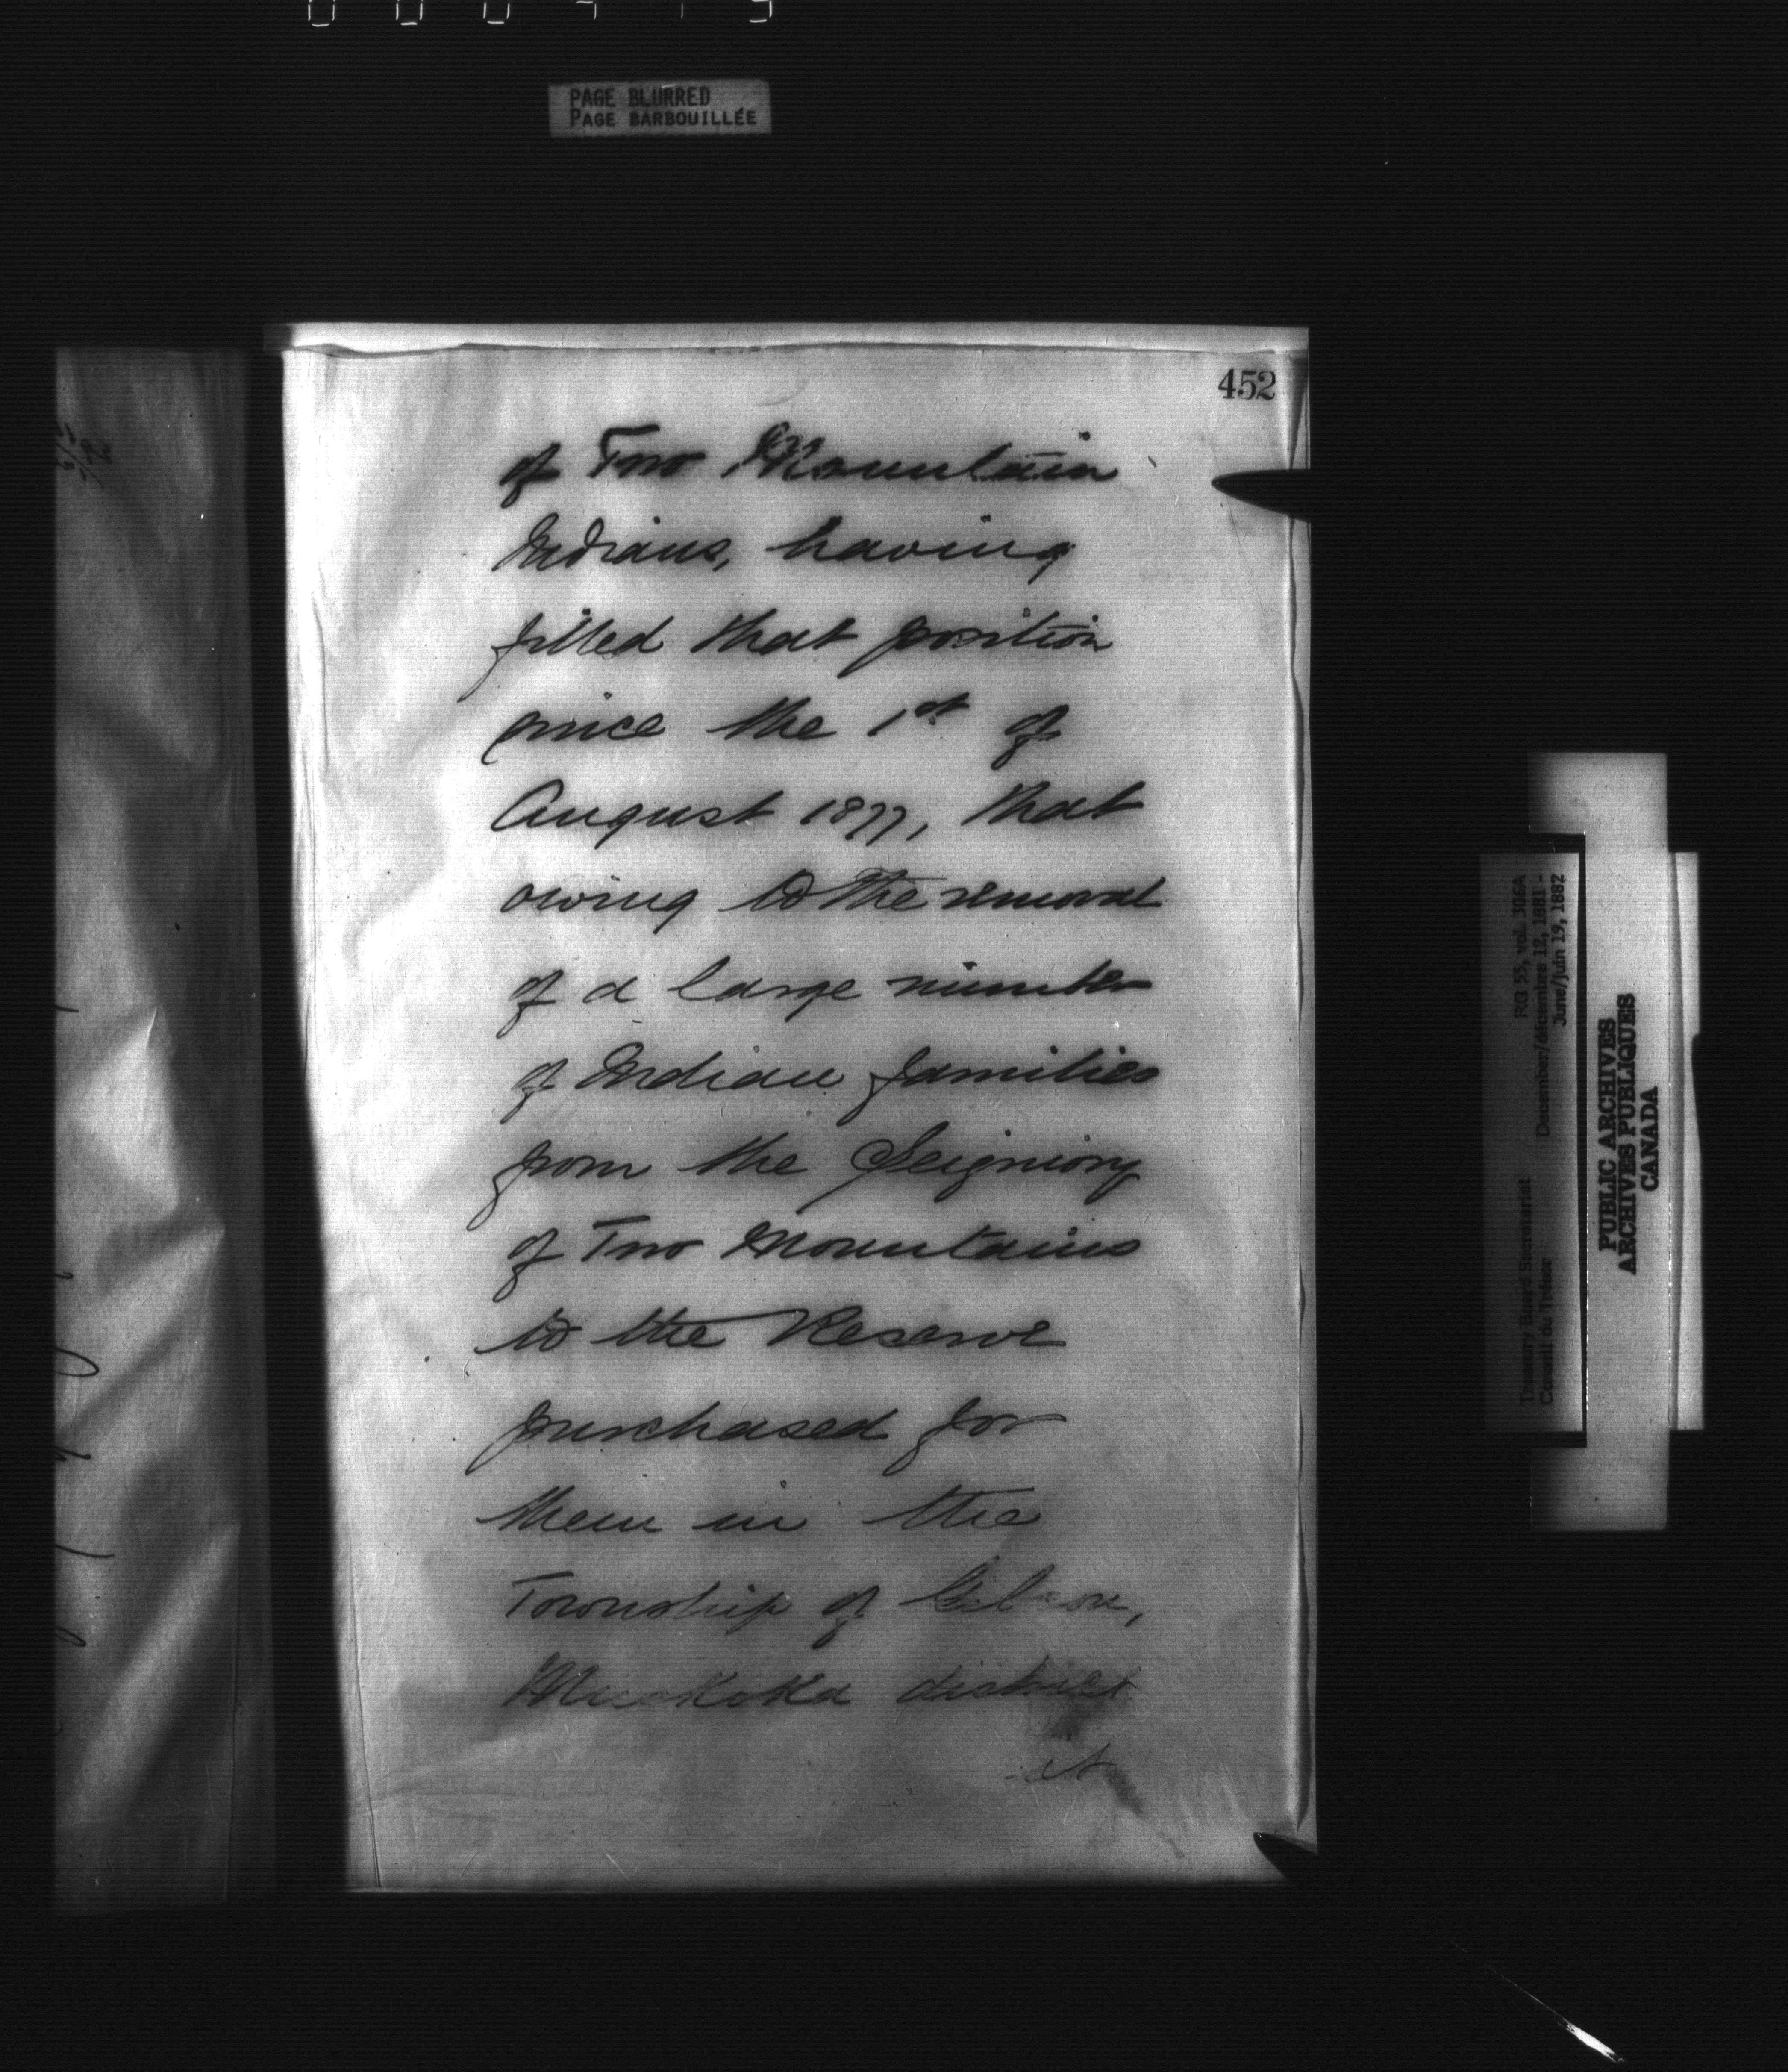 PAGE BLURRED
PAGE BARBOUILLÉE
452
of Two Mountain
Indians, having
filled that position
since the 1st of
August 1877, that
owing to the removal
of a large number
of Indian families
from the Seigniory
of Two Mountains
to the Reserve
purchased for
them in the
Township of Gibson,
Muskoka district
it
Treasury Board Secretariat RG 55, vol. 306A
Conseil du Trésor December/décembre 12, 1881 -
June/juin 19, 1882
PUBLIC ARCHIVES
ARCHIVES PUBLIQUES
CANADA